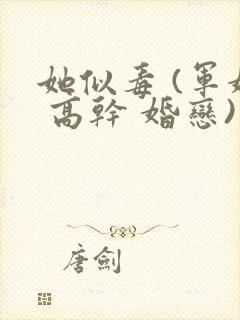 她似毒(軍婚
高幹 婚戀)
唐劍